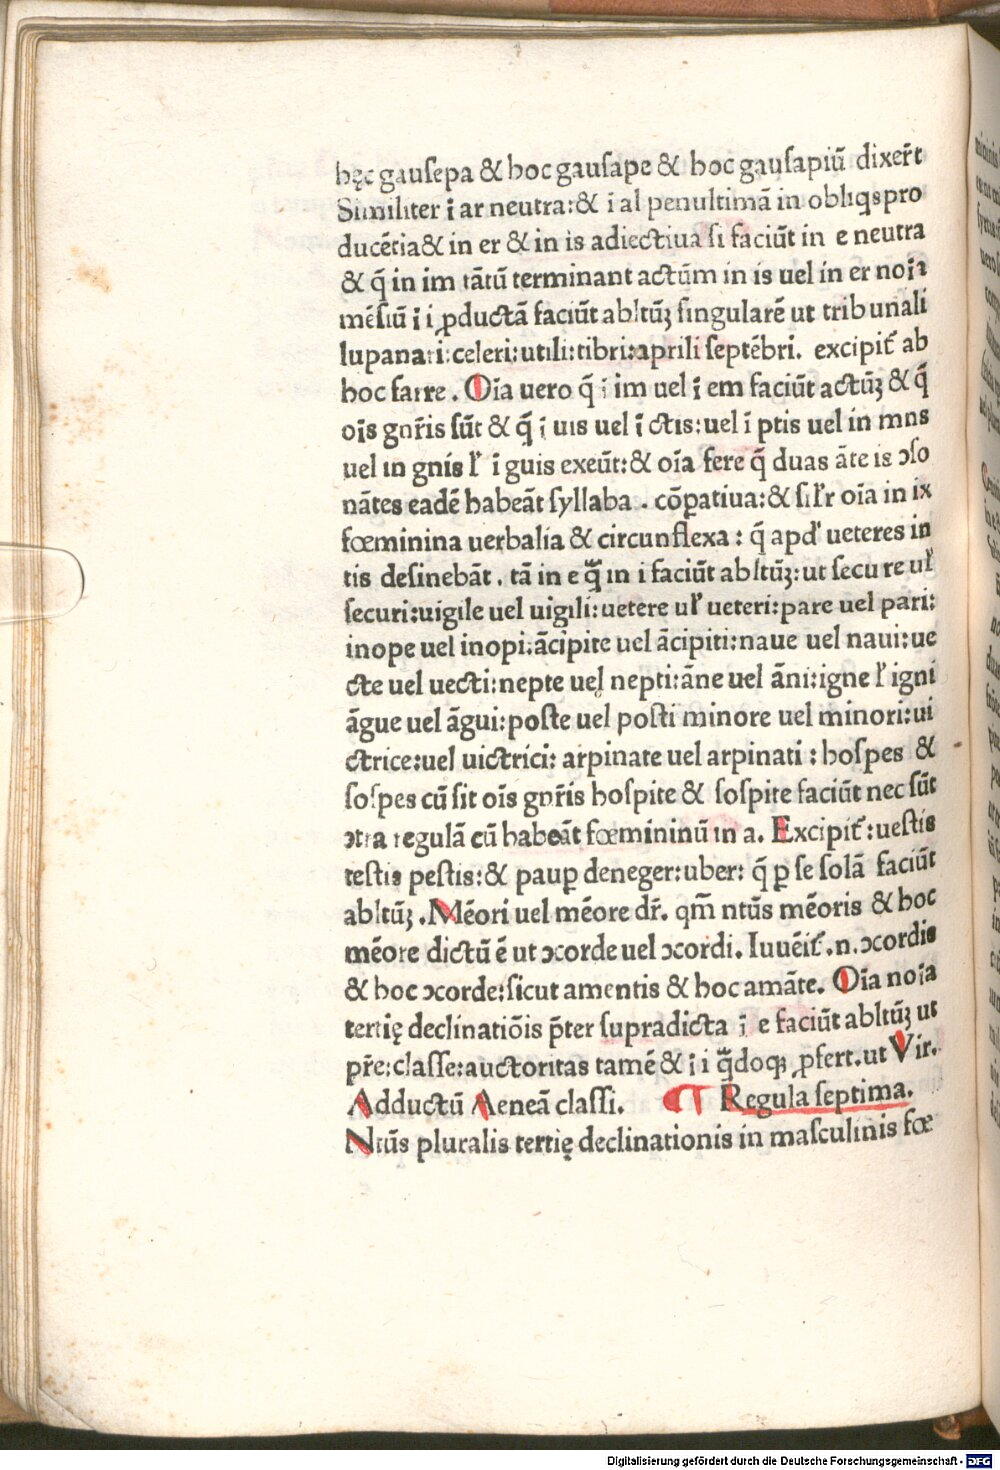 hęc gausepa & hoc gausape & hoc gausapiū dixer̄t
Similiter ī ar neutra: & ī al penultimā in obliq̄s pro
ducētia & in er & in is adiectiua si faciūt in e neutra
& q̄ in im tātū terminant actūm in is uel in er noīa
mēsiū ī i ꝓductā faciūt abltūꝫ singularē ut tribunali
lupanari: celeri: utili: tibri: aprili septēbri. excipit̄ ab
hoc farre. Oīa uero q̄ ī im uel ī em faciūt actūꝫ & q̄
oīs gn̄ris sūt & q̄ ī uis uel ī ctis: uel ī ptis uel in mns
uel in gnis ł ī guis exeūt: & oīa fere q̄ duas āte is ɔso
nātes eadē habeāt syllaba. cōꝑatiua: & sił'r oīa in ix
fœminina uerbalia & circunflexa: q̄ apd' ueteres in
tis desinebāt. tā in e q̄̄ in i faciūt abltūꝫ: ut secure uł
securi: uigile uel uigili: uetere uł ueteri: pare uel pari:
inope uel inopi: ācipite uel ācipiti: naue uel naui: ue
cte uel uecti: nepte uel nepti: āne uel āni: igne ł igni
āgue uel āgui: poste uel posti minore uel minori: ui
ctrice: uel uictrici: arpinate uel arpinati: hospes &
sospes cū sit oīs gn̄ris hospite & sospite faciūt nec sūt
ɔtra regulā cū habeāt fœmininū in a. Excipit̄: uestis
testis pestis: & pauꝑ deneger: uber: q̄ ꝑ se solā faciūt
abltūꝫ. Mēori uel mēore dr̄. qm̄ ntūs mēoris & hoc
mēore dictū ē ut ɔcorde uel ɔcordi. Iuuēit̄. n. ɔcordis
& hoc ɔcorde: sicut amentis & hoc amāte. Oīa noīa
tertię declinatiōis p̄ter supradicta ī e faciūt abltūꝫ ut
pr̄e: classe: auctoritas tamē & ī i q̄̄doqꝫ ꝓfert. ut Vir.
Adductū Aeneā classi. ¶ Regula septima.
Ntūs pluralis tertię declinationis in masculinis fœ
Digitalisierung gefördert durch die Deutsche Forschungsgemeinschaft - DFG